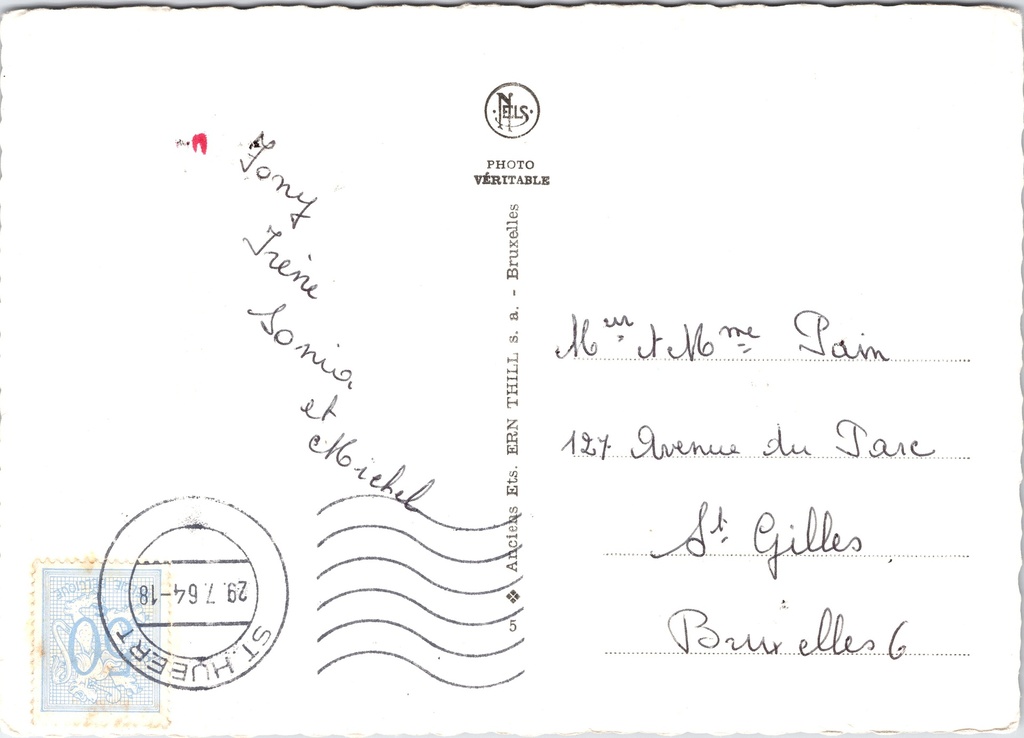 NELS
PHOTO
VÉRITABLE
Tony
Irène
Sonia
et
Michel
5 ❖ Anciens Ets. ERN THILL s. a. - Bruxelles
Mr et Mme Pain
127 Avenue du Parc
St Gilles
Bruxelles 6
ST. HUBERT
29.7.64-18
BELGIQUE
50